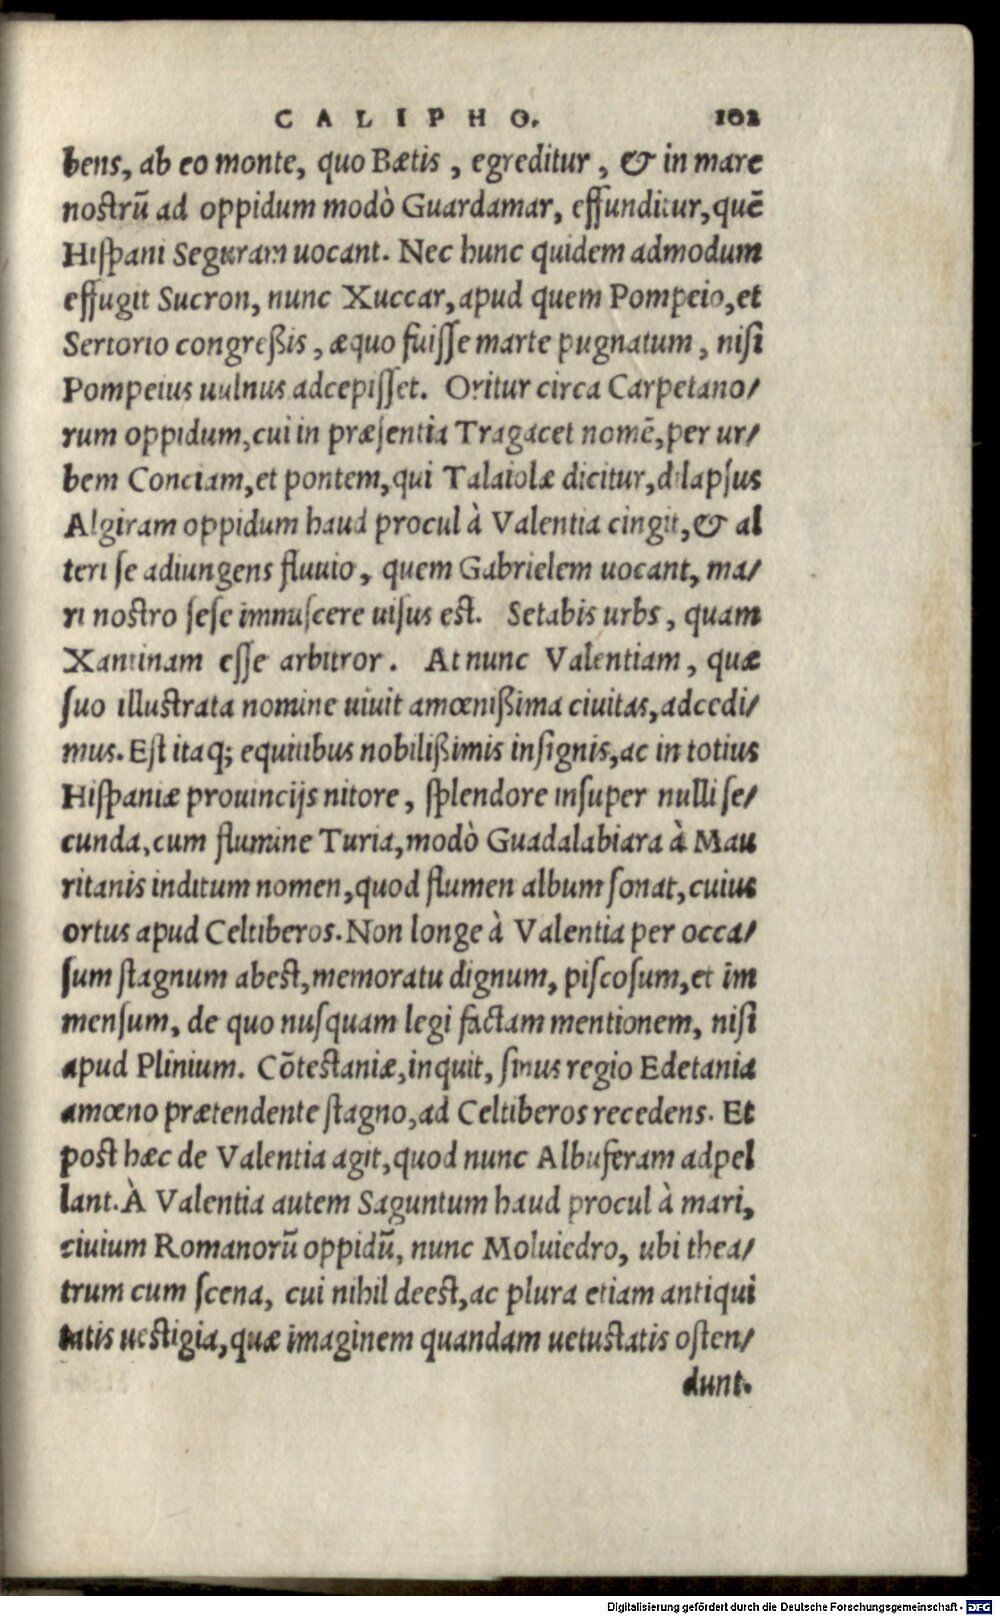 CALIPHO. 102
bens, ab eo monte, quo Bætis, egreditur, & in mare
nostrū ad oppidum modò Guardamar, effunditur, quē
Hispani Seguram uocant. Nec hunc quidem admodum
effugit Sucron, nunc Xuccar, apud quem Pompeio, et
Sertorio congreßis, æquo fuisse marte pugnatum, nisi
Pompeius uulnus adcepisset. Oritur circa Carpetano/
rum oppidum, cui in præsentia Tragacet nomē, per ur/
bem Conciam, et pontem, qui Talaiolæ dicitur, dilapsus
Algiram oppidum haud procul à Valentia cingit, & al
teri se adiungens fluuio, quem Gabrielem uocant, ma/
ri nostro sese immiscere uisus est. Setabis urbs, quam
Xantinam esse arbitror. At nunc Valentiam, quæ
suo illustrata nomine uiuit amœnißima ciuitas, adcedi/
mus. Est itaq; equitibus nobilißimis insignis, ac in totius
Hispaniæ prouincijs nitore, splendore insuper nulli se/
cunda, cum flumine Turia, modò Guadalabiara à Mau
ritanis inditum nomen, quod flumen album sonat, cuius
ortus apud Celtiberos. Non longe à Valentia per occa/
sum stagnum abest, memoratu dignum, piscosum, et im
mensum, de quo nusquam legi factam mentionem, nisi
apud Plinium. Cōtestaniæ, inquit, sinus regio Edetania
amœno prætendente stagno, ad Celtiberos recedens. Et
post hæc de Valentia agit, quod nunc Albuferam adpel
lant. À Valentia autem Saguntum haud procul à mari,
ciuium Romanorū oppidū, nunc Moluiedro, ubi thea/
trum cum scena, cui nihil deest, ac plura etiam antiqui
tatis uestigia, quæ imaginem quandam uetustatis osten/
dunt.
Digitalisierung gefördert durch die Deutsche Forschungsgemeinschaft - DFG